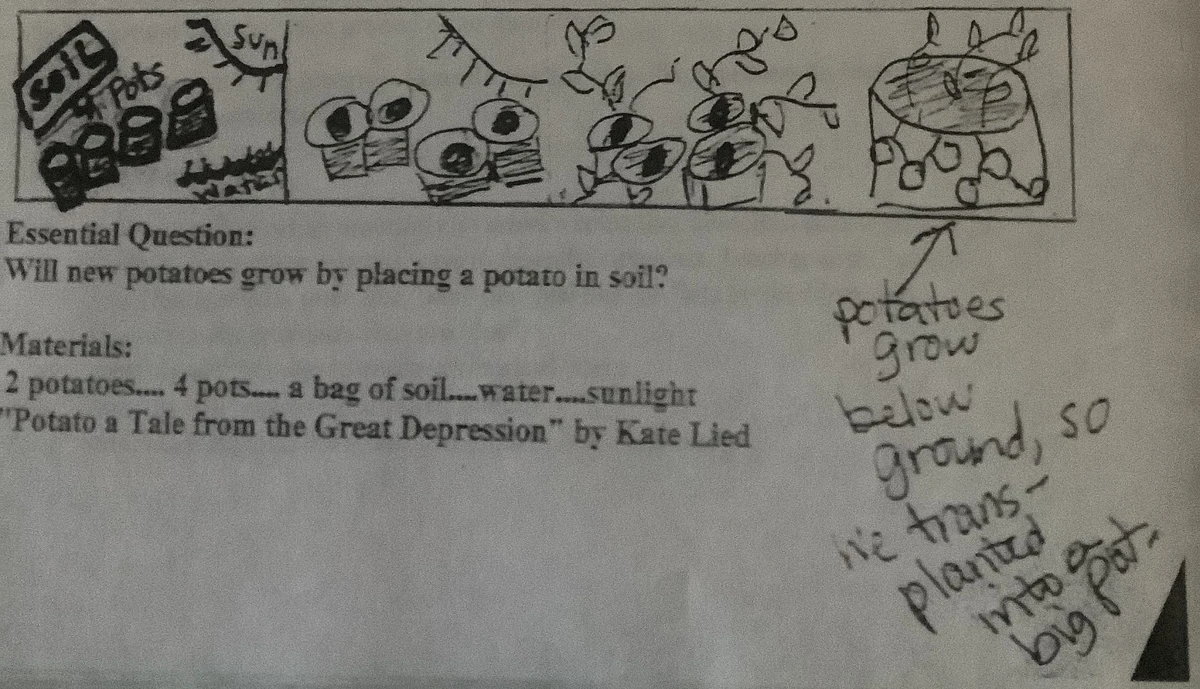 SOIL
4 Pots
Sun
Water
Essential Question:
Will new potatoes grow by placing a potato in soil?
Materials:
2 potatoes.... 4 pots.... a bag of soil....water....sunlight
"Potato a Tale from the Great Depression" by Kate Lied
potatoes
grow
below
ground, so
we trans-
planted
into a
big pot.